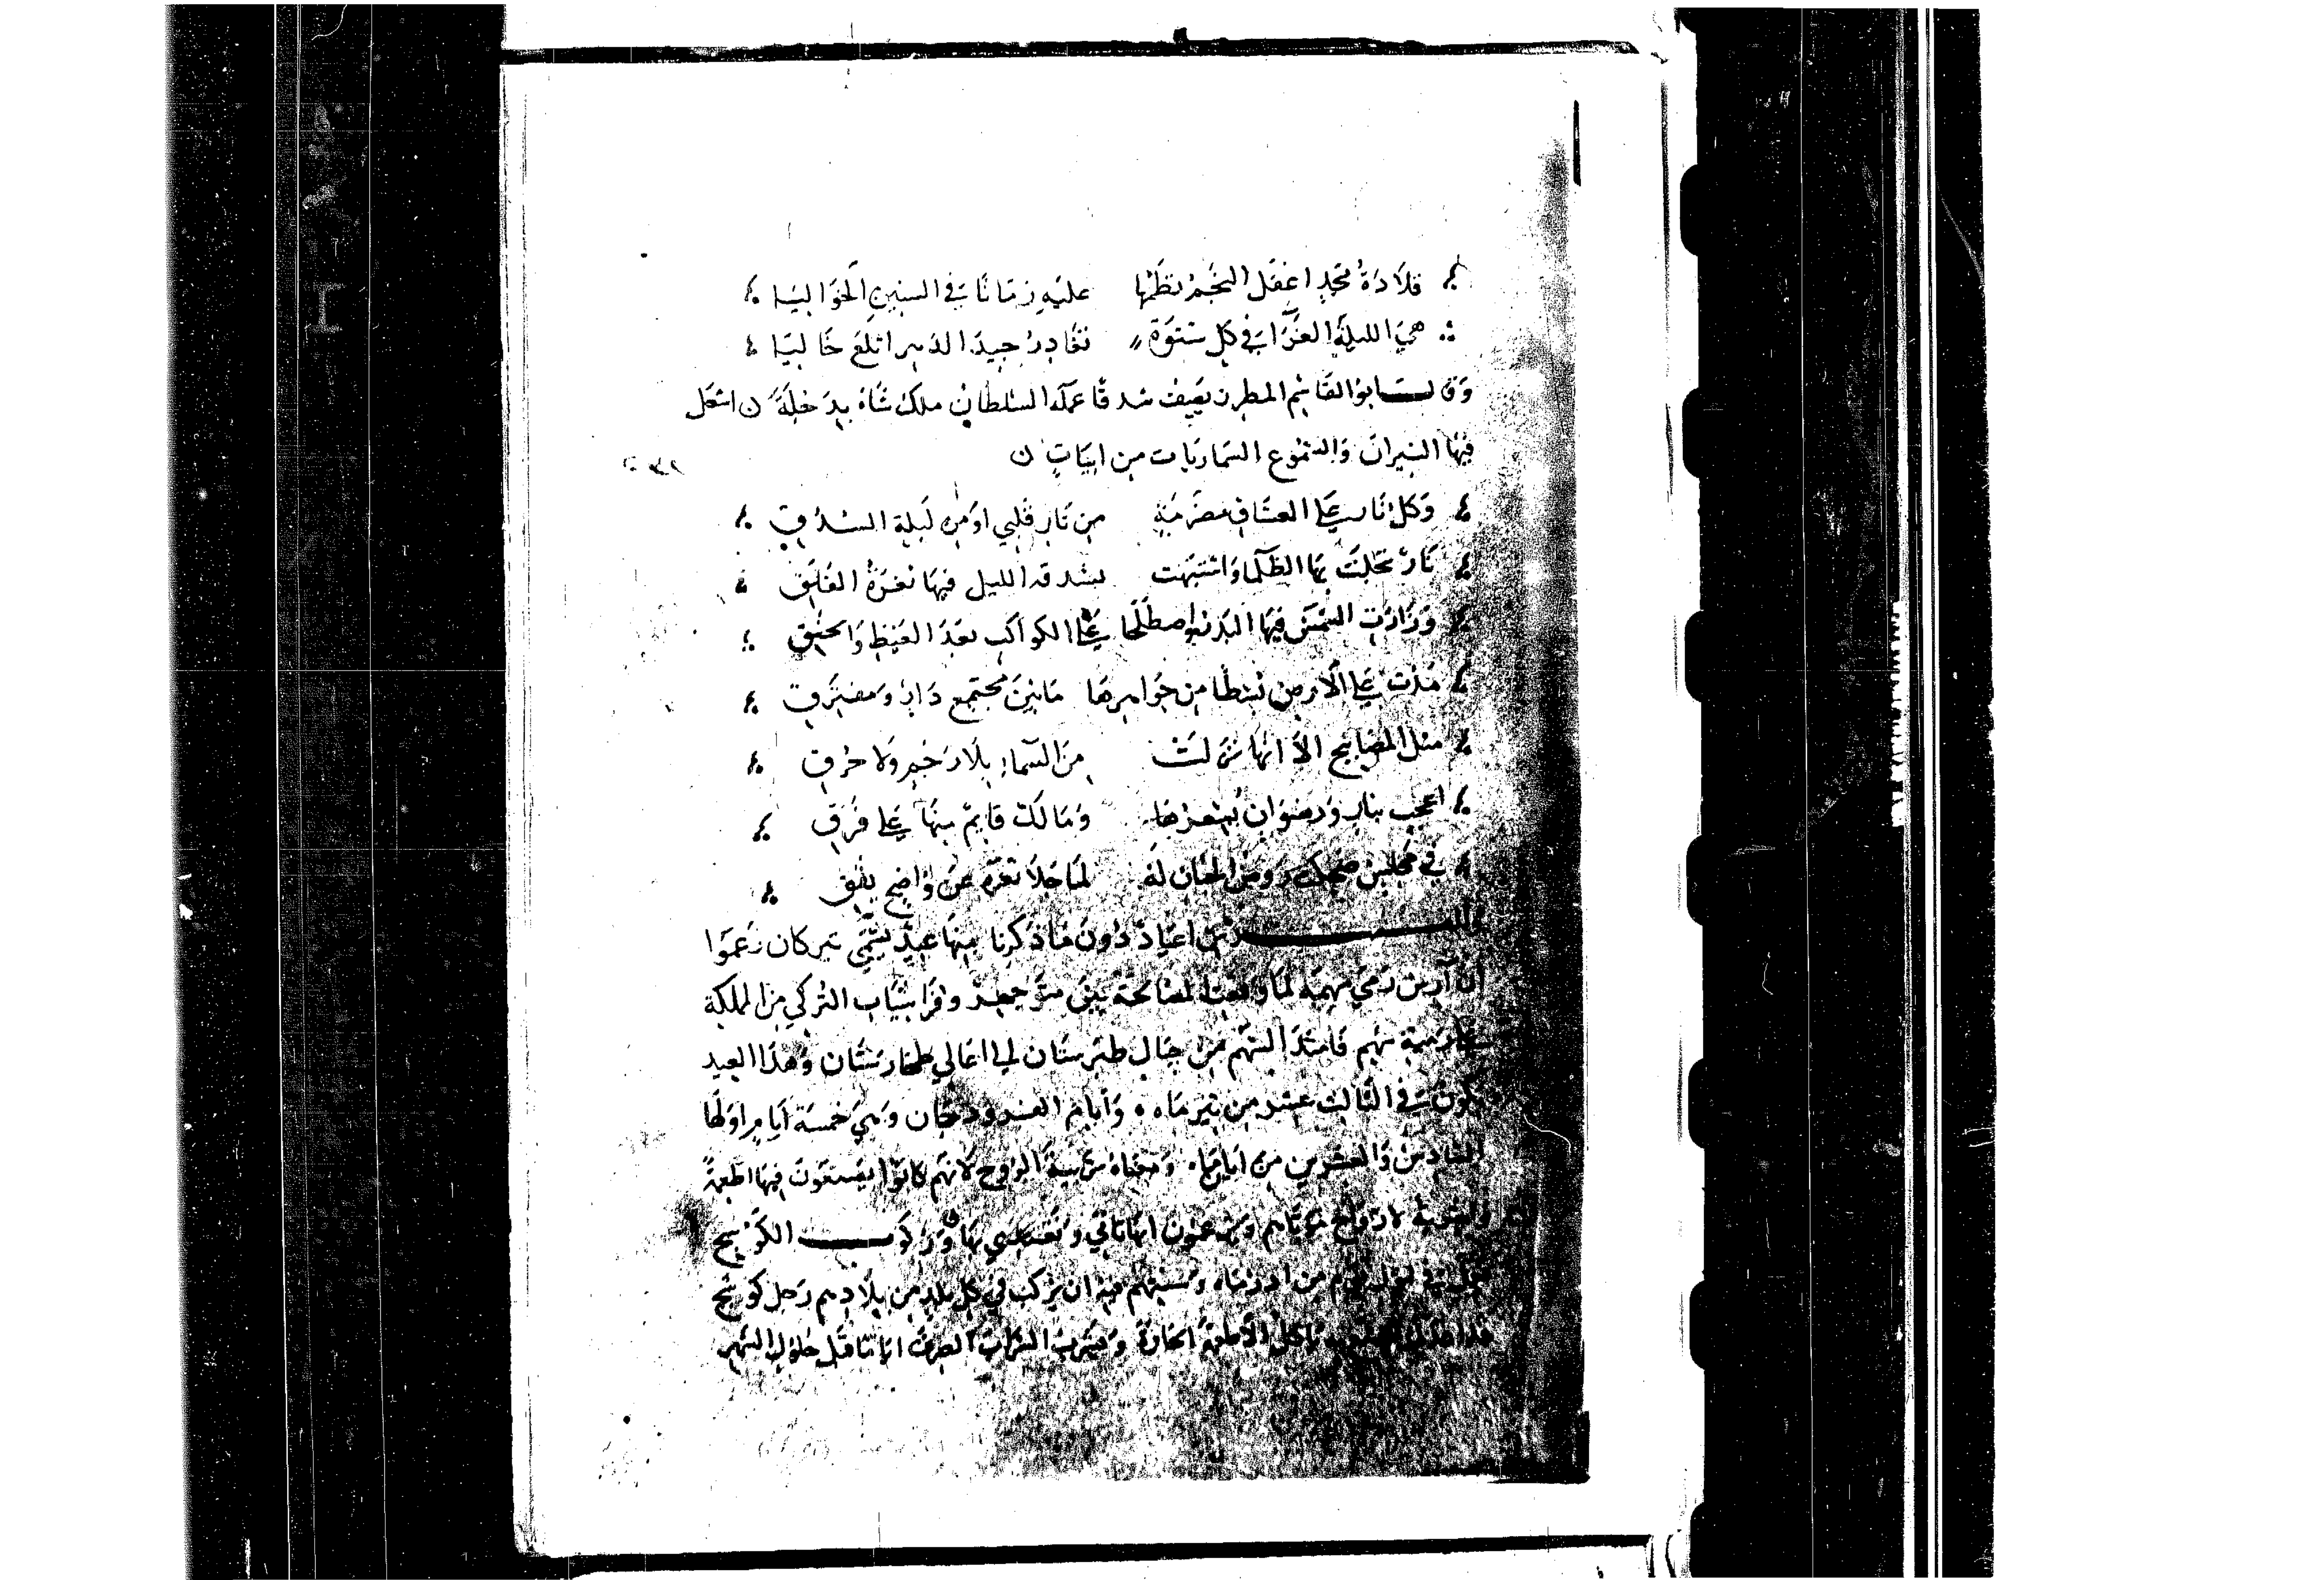 قلادة مجد اغفل النجم نظمها عليه زمانا في السنين الخواليا
هي الليلة الغراء في كل شتوة تغادر جيد الدهر اتلع حاليا
وقال ابو القاسم المطرز يصف سدقا عمله السلطان ملك شاه بدجلة اشعل
فيها النيران والشموع السماريات من ابيات
وكل نار على العشاق مضرمة من نار قلبي او من ليلة السدق
نار تجلت بها الظلماء واشتبهت بسدقة الليل فيها غرة الفلق
وزارت الشمس فيها البدر واصطلحا على الكواكب بعد الغيظ والحنق
مدت على الارض بسطا من جواهرها ما بين مجتمع دار ومفترق
مثل المصابيح الا انها نزلت من السماء بلا رجم ولا حرق
اعجب بنار ورضوان يسعرها ومالك قايم منها على فرق
في مجلس ضحكت روض الجنان له لما جلا ثغره عن واضح يقق
وللفرس اعياد دون ما ذكرنا منها عيد يسمى تيركان زعموا
ان آرش رمى سهمه لما وقعت المصالحة بين منوجهر وافراسياب التركي من المملكة
على رمية سهم فامتد السهم من جبال طبرستان الى اعالي طخارستان وهذا العيد
يكون في الثالث عشر من تير ماه وايام الفرودجان وهي خمسة ايام اولها
السادس والعشرين من ابان ماه ومعناه تربية الروح لانهم كانوا يصنعون فيها اطعمة
واشربة لارواح موتاهم ويزعمون انها تاتي وتغتذي بها وركوب الكوسج
في اول يوم من اذرماه وسنتهم فيه ان يركب في كل بلد من بلادهم رجل كوسج
ياكل الاطعمة الحارة ويشرب الشراب الصرف اياما قبل حلول الشهر